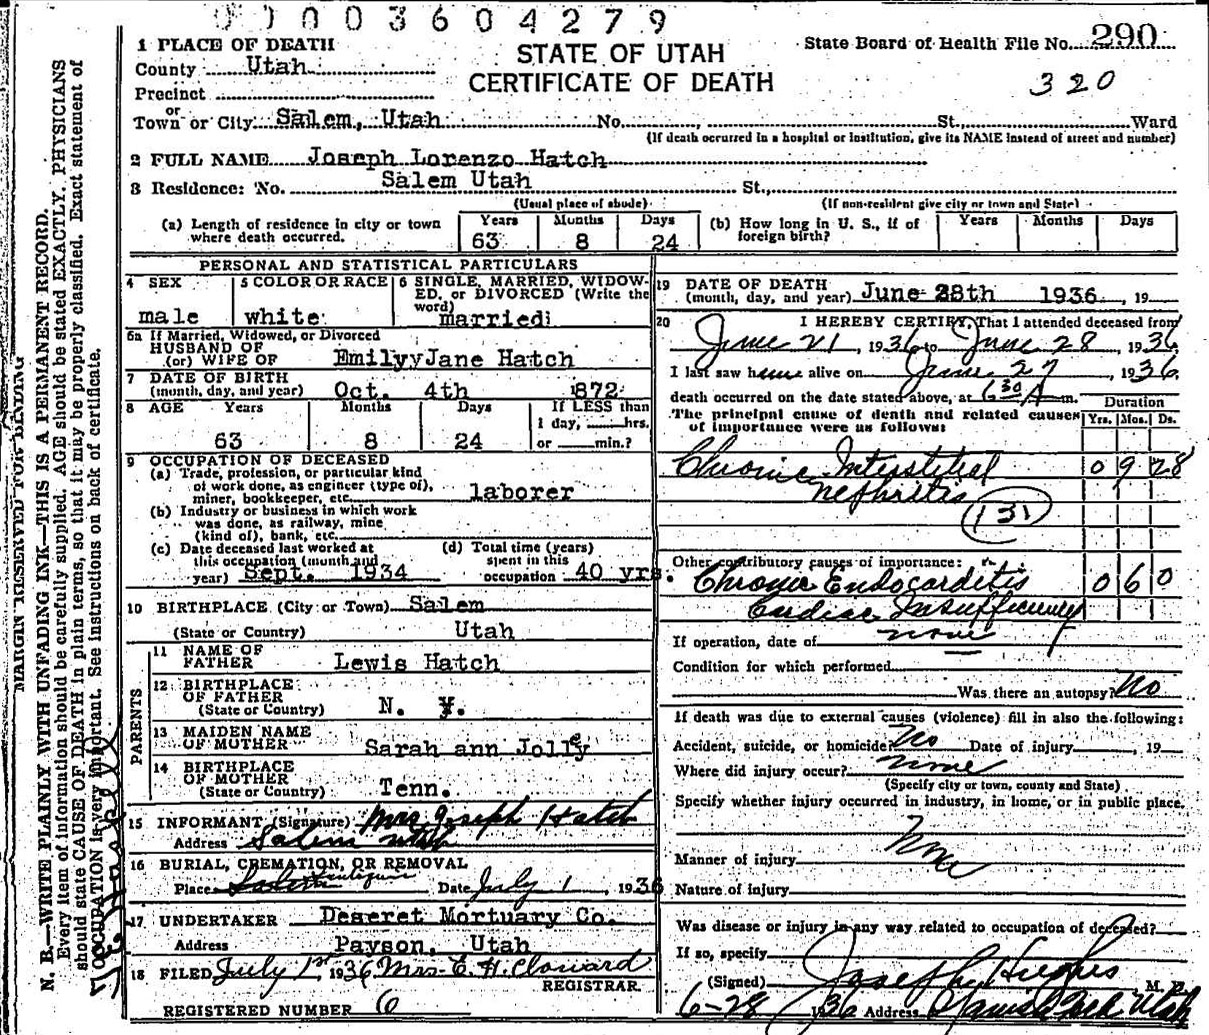 00003604279
1 PLACE OF DEATH
STATE OF UTAH
State Board of Health File No. 290
County Utah
CERTIFICATE OF DEATH
320
Precinct
or
Town or City Salem, Utah No. St., Ward
(If death occurred in a hospital or institution, give its NAME instead of street and number)
2 FULL NAME Joseph Lorenzo Hatch
3 Residence: No. Salem Utah St.,
(Usual place of abode) (If non-resident give city or town and State)
(a) Length of residence in city or town where death occurred. Years 63 Months 8 Days 24
(b) How long in U. S., if of foreign birth? Years Months Days
PERSONAL AND STATISTICAL PARTICULARS
4 SEX male
5 COLOR OR RACE white
6 SINGLE, MARRIED, WIDOW-
ED, or DIVORCED (Write the
word) married
6a If Married, Widowed, or Divorced
HUSBAND OF
(or) WIFE OF Emilyy Jane Hatch
7 DATE OF BIRTH
(month, day, and year) Oct. 4th 872
8 AGE Years Months Days If LESS than
1 day, hrs.
63 8 24 or min.?
9 OCCUPATION OF DECEASED
(a) Trade, profession, or particular kind
of work done, as engineer (type of),
miner, bookkeeper, etc. laborer
(b) Industry or business in which work
was done, as railway, mine
(kind of), bank, etc.
(c) Date deceased last worked at
this occupation (month and
year) Sept. 1934
(d) Total time (years)
spent in this
occupation 40 yrs.
10 BIRTHPLACE (City or Town) Salem
(State or Country) Utah
PARENTS
11 NAME OF
FATHER Lewis Hatch
12 BIRTHPLACE
OF FATHER
(State or Country) N. Y.
13 MAIDEN NAME
OF MOTHER Sarah ann Jolley
14 BIRTHPLACE
OF MOTHER
(State or Country) Tenn.
15 INFORMANT (Signature) Mrs Joseph Hatch
Address Salem Utah
16 BURIAL, CREMATION, OR REMOVAL
Place Salem Date July 1, 1936
17 UNDERTAKER Deseret Mortuary Co.
Address Payson, Utah
18 FILED July 1st 1936 Mrs. E. H. Cloward
REGISTRAR
REGISTERED NUMBER 6
19 DATE OF DEATH
(month, day, and year) June 28th 1936, 19
20 I HEREBY CERTIFY, That I attended deceased from
June 21, 1936 to June 28, 1936
I last saw him alive on June 27, 1936
death occurred on the date stated above, at 6:30 A m.
The principal cause of death and related causes
of importance were as follows:
Duration
Yrs. Mos. Ds.
Chronic Interstitial 0 9 28
nephritis
131
Other contributory causes of importance:
Chronic Endocarditis 0 6 0
Cardiac Insufficiency
If operation, date of none
Condition for which performed
Was there an autopsy? No
If death was due to external causes (violence) fill in also the following:
Accident, suicide, or homicide? No Date of injury, 19
Where did injury occur? none
(Specify city or town, county and State)
Specify whether injury occurred in industry, in home, or in public place.
None
Manner of injury
Nature of injury
Was disease or injury in any way related to occupation of deceased?
If so, specify
(Signed) Joseph Hughes M. D.
6-28 1936 Address Spanish Fork Utah
MARGIN RESERVED FOR BINDING
N. B.—WRITE PLAINLY WITH UNFADING INK—THIS IS A PERMANENT RECORD.
Every item of information should be carefully supplied. AGE should be stated EXACTLY. PHYSICIANS
should state CAUSE OF DEATH in plain terms, so that it may be properly classified. Exact statement of
OCCUPATION is very important. See instructions on back of certificate.